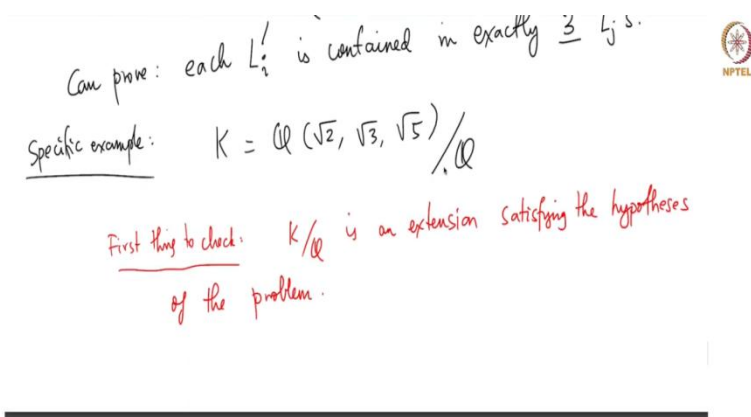 Can prove: each L'_i is contained in exactly 3 L_j's.
NPTEL
Specific example: K = Q(√2, √3, √5)/Q
First thing to check: K/Q is an extension satisfying the hypotheses
of the problem.